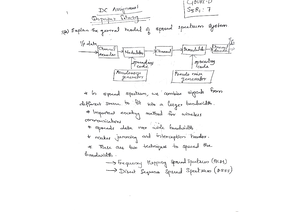 DC Assignment
Group: D
SSR: 7
Q) Explain the general model of spread spectrum system
I/p data
Channel encoder
Modulator
Channel
Demodulator
Channel
Spreading code
Spreading code
Pseudonoise generator
Pseudo noise generator
* In spread spectrum, we combine signals from
different sources to fit into a larger bandwidth.
* Important encoding method for wireless
communications
* spreads data over wide bandwidth
* makes jamming and interception harder.
* There are two techniques to spread the
bandwidth
→ Frequency Hopping Spread Spectrum (FHSS)
→ Direct Sequence Spread Spectrum (DSSS)